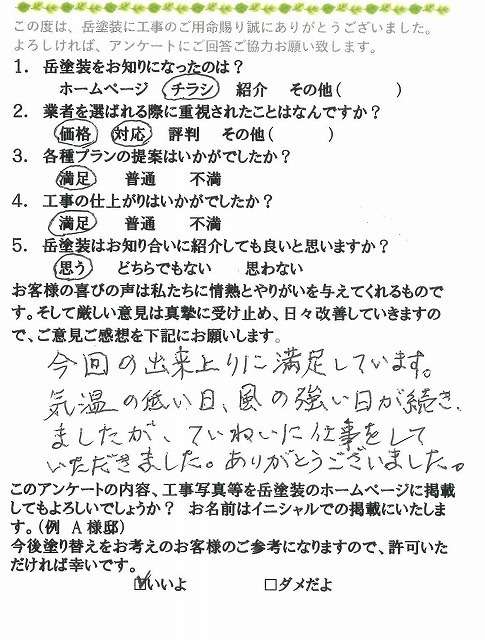 この度は、岳塗装に工事のご用命賜り誠にありがとうございました。
よろしければ、アンケートにご回答ご協力お願い致します。
1. 岳塗装をお知りになったのは？
ホームページ チラシ 紹介 その他( )
2. 業者を選ばれる際に重視されたことはなんですか？
価格 対応 評判 その他( )
3. 各種プランの提案はいかがでしたか？
満足 普通 不満
4. 工事の仕上がりはいかがでしたか？
満足 普通 不満
5. 岳塗装はお知り合いに紹介しても良いと思いますか？
思う どちらでもない 思わない
お客様の喜びの声は私たちに情熱とやりがいを与えてくれるもので
す。そして厳しい意見は真摯に受け止め、日々改善していきますの
で、ご意見ご感想を下記にお願いします。
今回の出来上りに満足しています。
気温の低い日、風の強い日が続き、
ましたが、ていねいに仕事をして
いただきました。ありがとうございました。
このアンケートの内容、工事写真等を岳塗装のホームページに掲載
してもよろしいでしょうか？ お名前はイニシャルでの掲載にいたしま
す。（例 A 様邸）
今後塗り替えをお考えのお客様のご参考になりますので、許可いた
だければ幸いです。
☑いいよ □ダメだよ